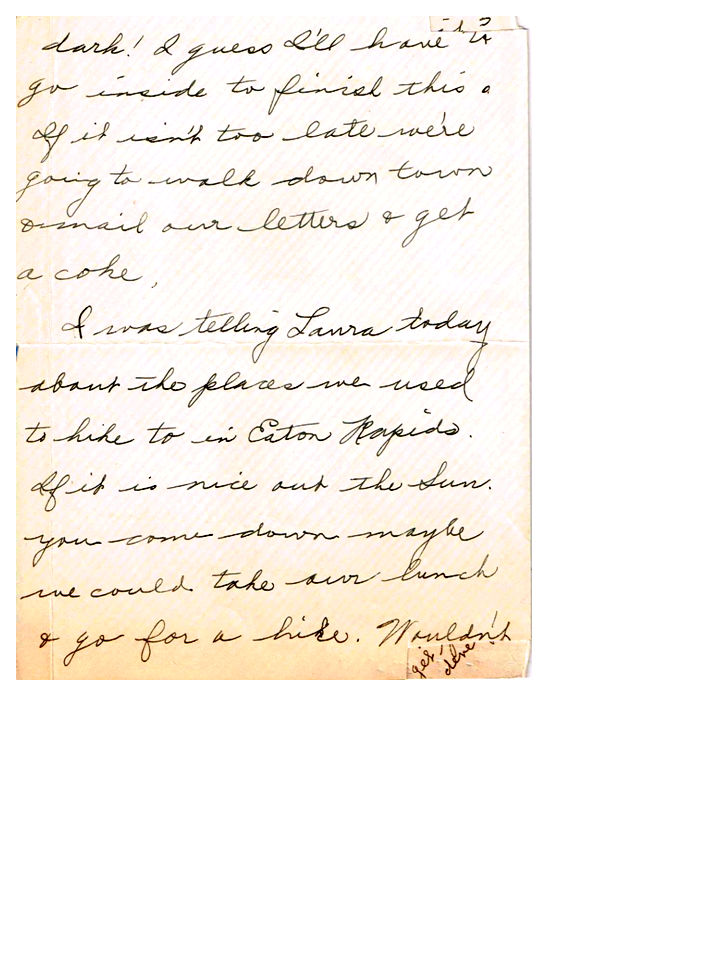 dark! I guess I'll have
go inside to finish this
If it isn't too late we're
going to walk down town
& mail our letters & get
a coke,
I was telling Laura today
about the places we used
to hike to in Eaton Rapids.
If it is nice out the Sun.
you come down maybe
we could take our lunch
& go for a hike. Wouldn't